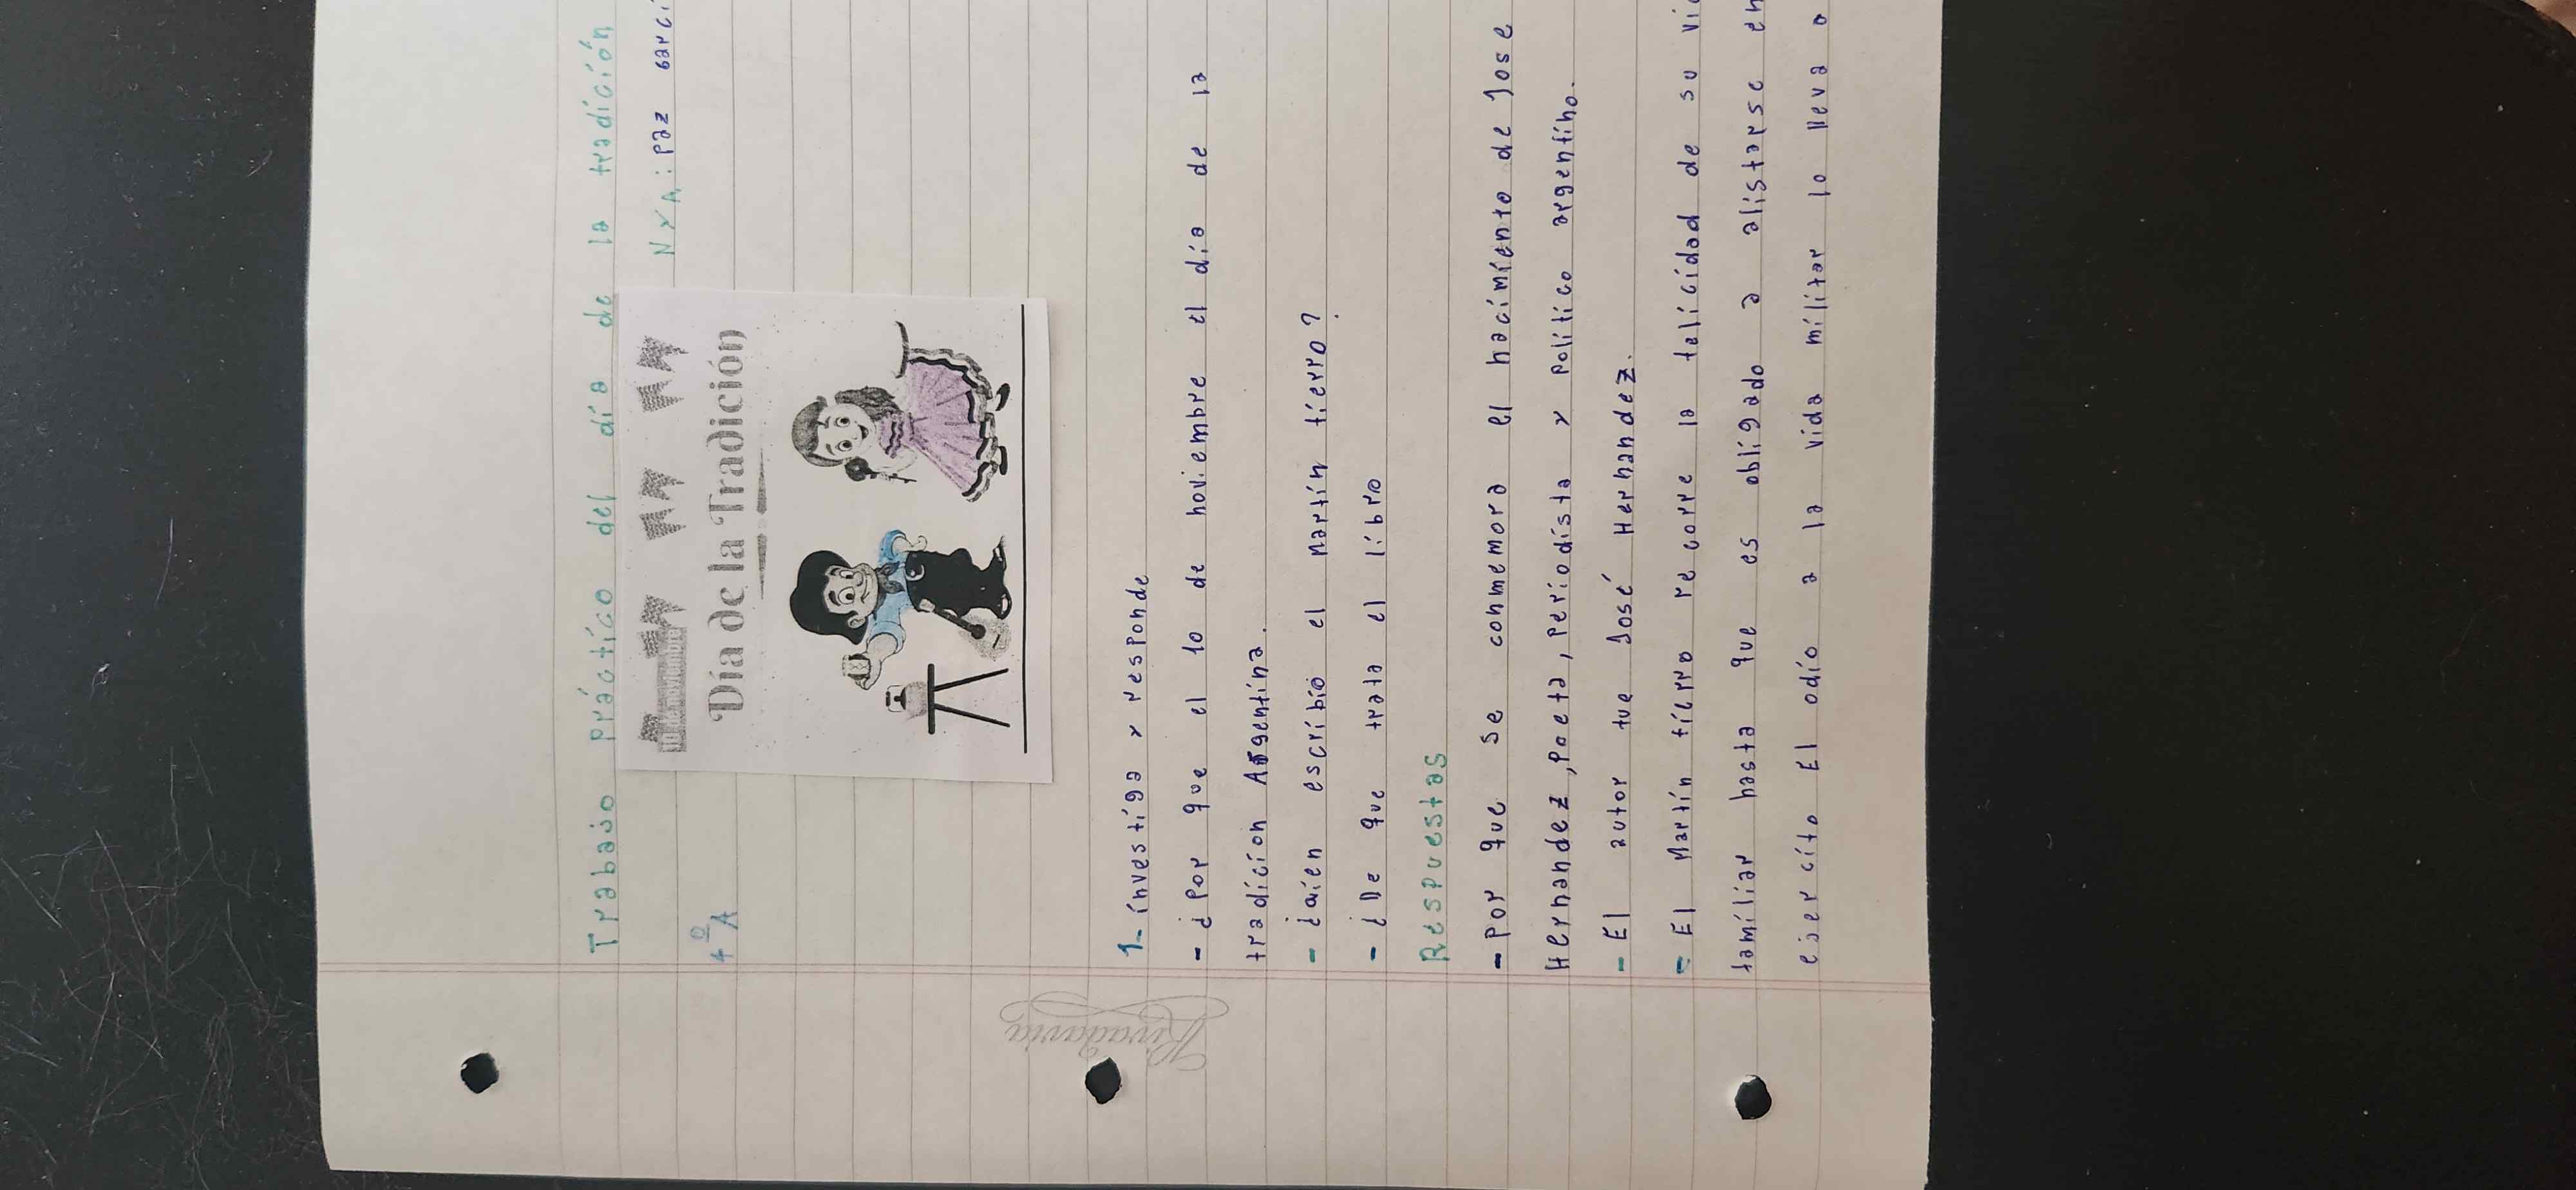 Trabajo práctico del día de la tradición
N y A: Paz
4º A
Día de la Tradición
1- investiga y responde
- ¿Por que el 10 de noviembre el día de la
tradicion Argentina.
- ¿Quien escribio el Martín fierro?
- ¿De que trata el libro
Rivadavia
Respuestas
- Por que se conmemora el nacimiento de Jose
Hernandez, Poeta, Periodista y Político argentino.
- El autor fue José Hernandez.
- El Martín fierro recorre la felicidad de su
familiar hasta que es obligado a alistarse en
ejercito El odio a la vida militar lo lleva